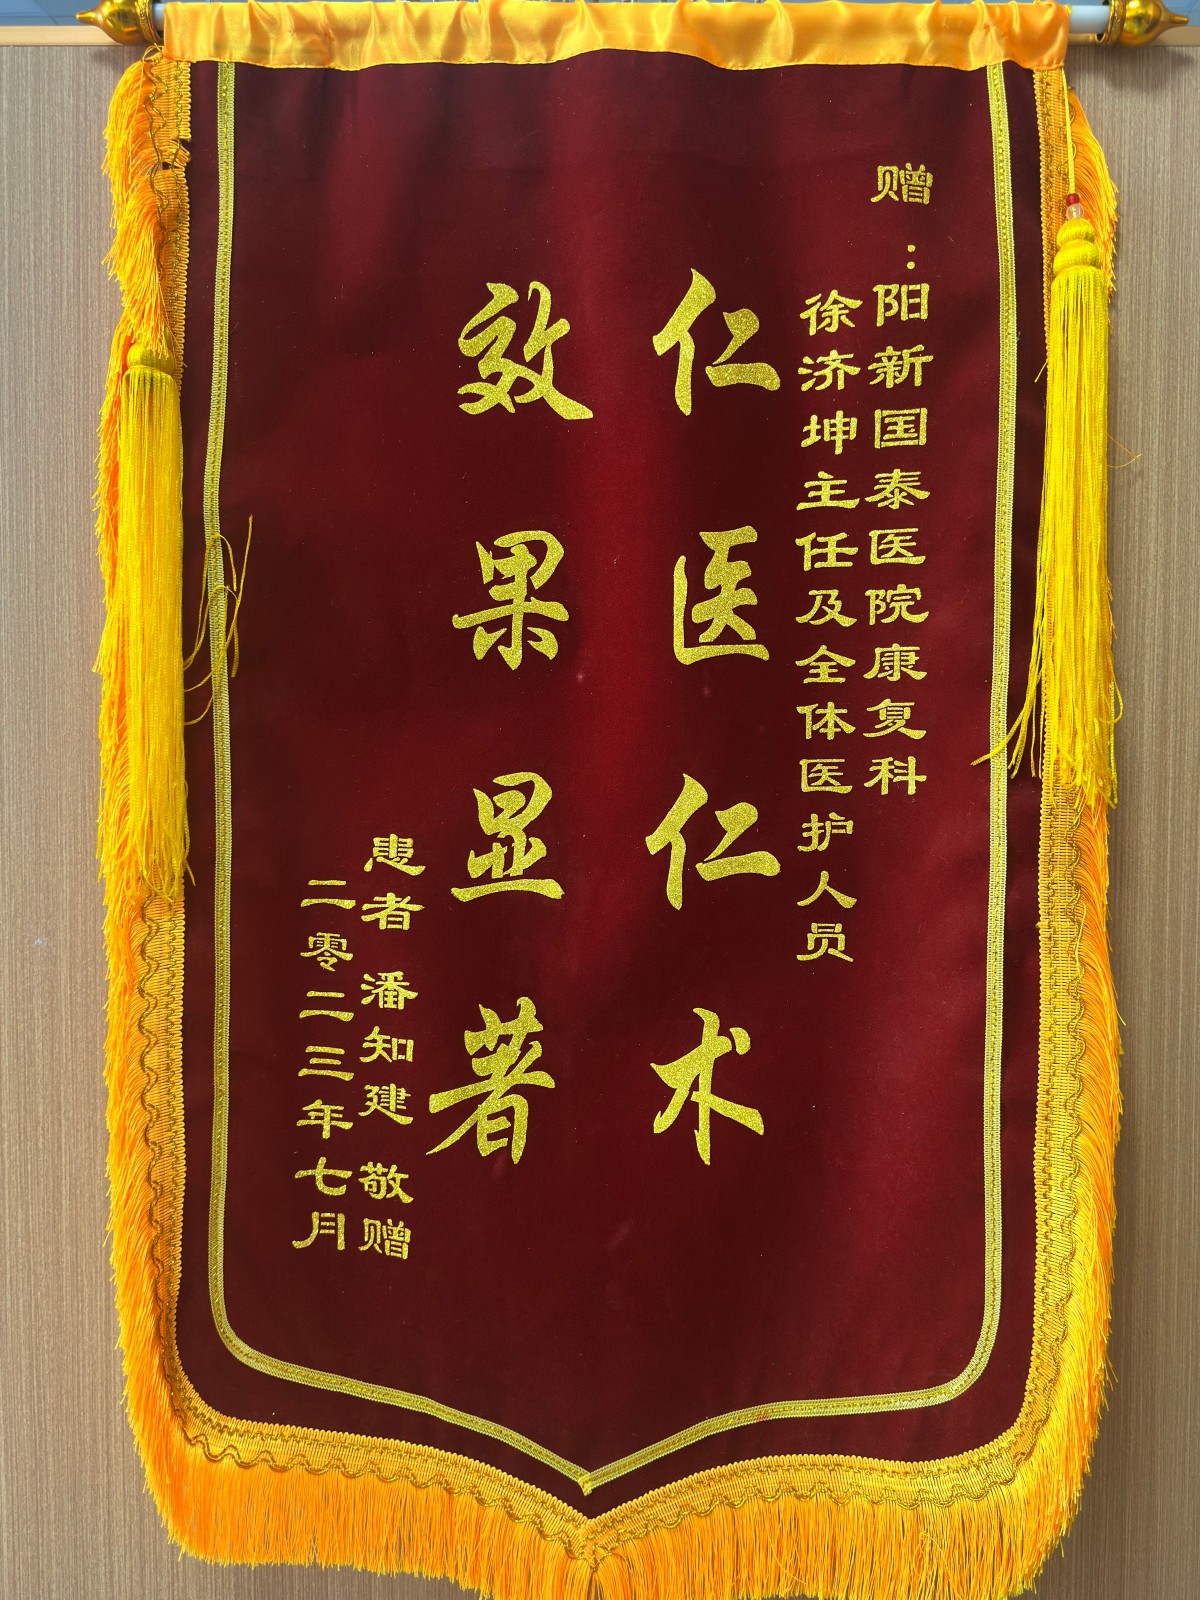 赠：阳新国泰医院康复科
徐济坤主任及全体医护人员
仁医仁术
效果显著
患者 潘知建 敬赠
二零二三年七月